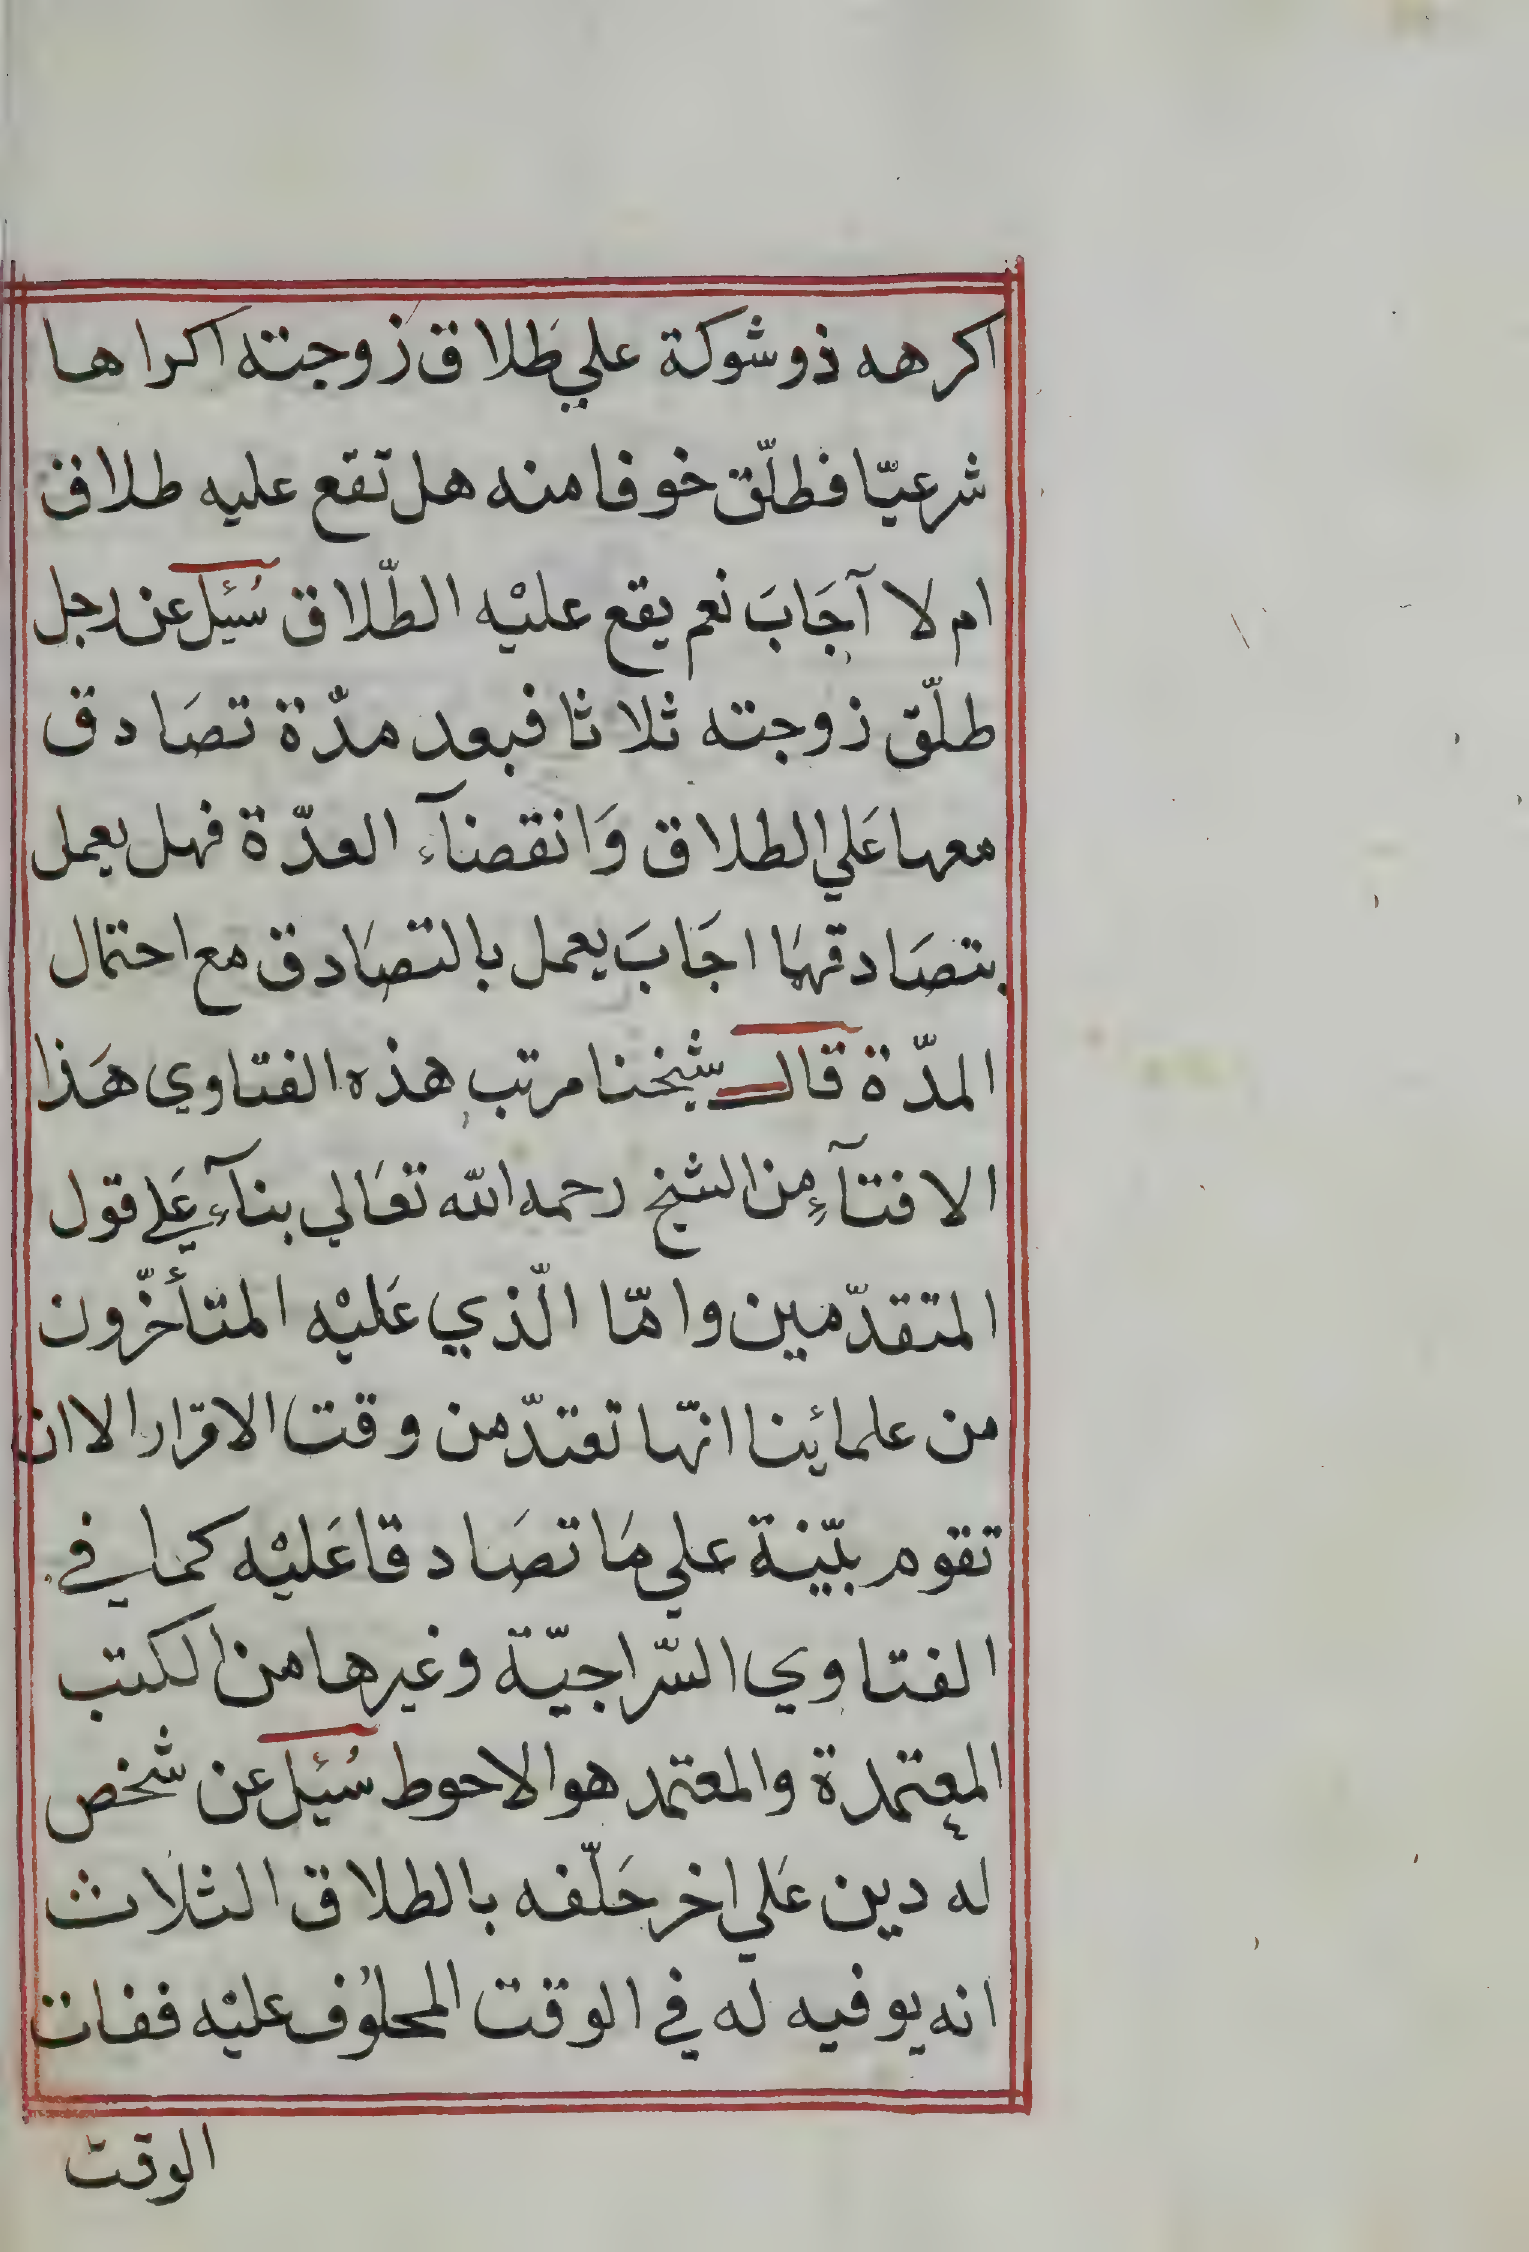 اكرهه ذو شوكة علي طَلاق زوجته اكراها
شرعيّا فطلّق خوفا منه هل تقع عليه طلاق
ام لا آجَابَ نعم يقع عليْه الطّلاق سُئِل عن رجل
طلّق زوجته ثلاثا فبعد مدّة تصَادق
معها عَلي الطلاق وَانقضآء العدّة فهل يعمل
بتصَادقهمَا اجَابَ يعمل بالتصَادق مع احتمال
المدّة قال شيخنا مرتب هذه الفتاوي هَذا
الافتآءِ من الشيخ رحمه الله تعَالي بنآء عَلي قول
المتقدّمين وامّا الّذي عَليْه المتأخّرون
من علمائنا انّها تعتدّ من وقت الاقرار الا ان
تقوم بيّنة علي مَا تصَادقا عَليْه كما في
الفتاوي السّراجيّة وغيرها من الكتب
المعتمدة والمعتمد هو الاحوط سُئِل عن شخص
له دين عَلي اخر حَلّفه بالطلاق الثلاث
انه يوفيه له في الوقت المحلوُف عليْه ففات
الوقت